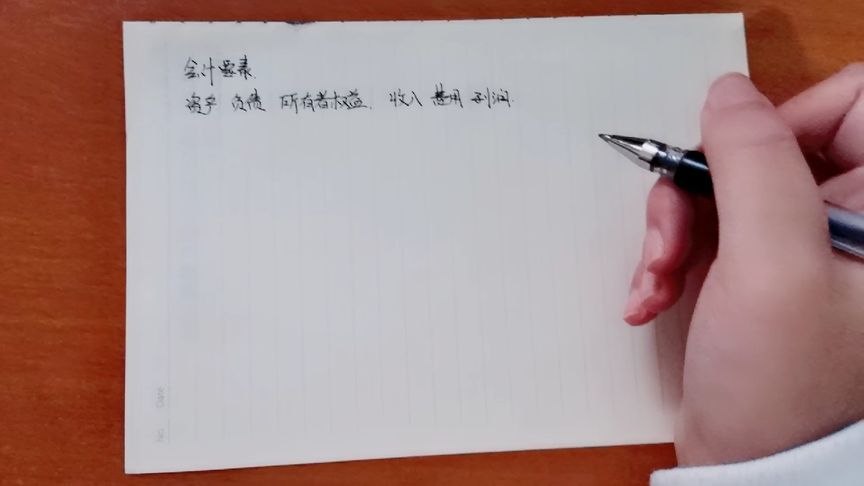 会计要素
资产 负债 所有者权益 收入 费用 利润
No. Date